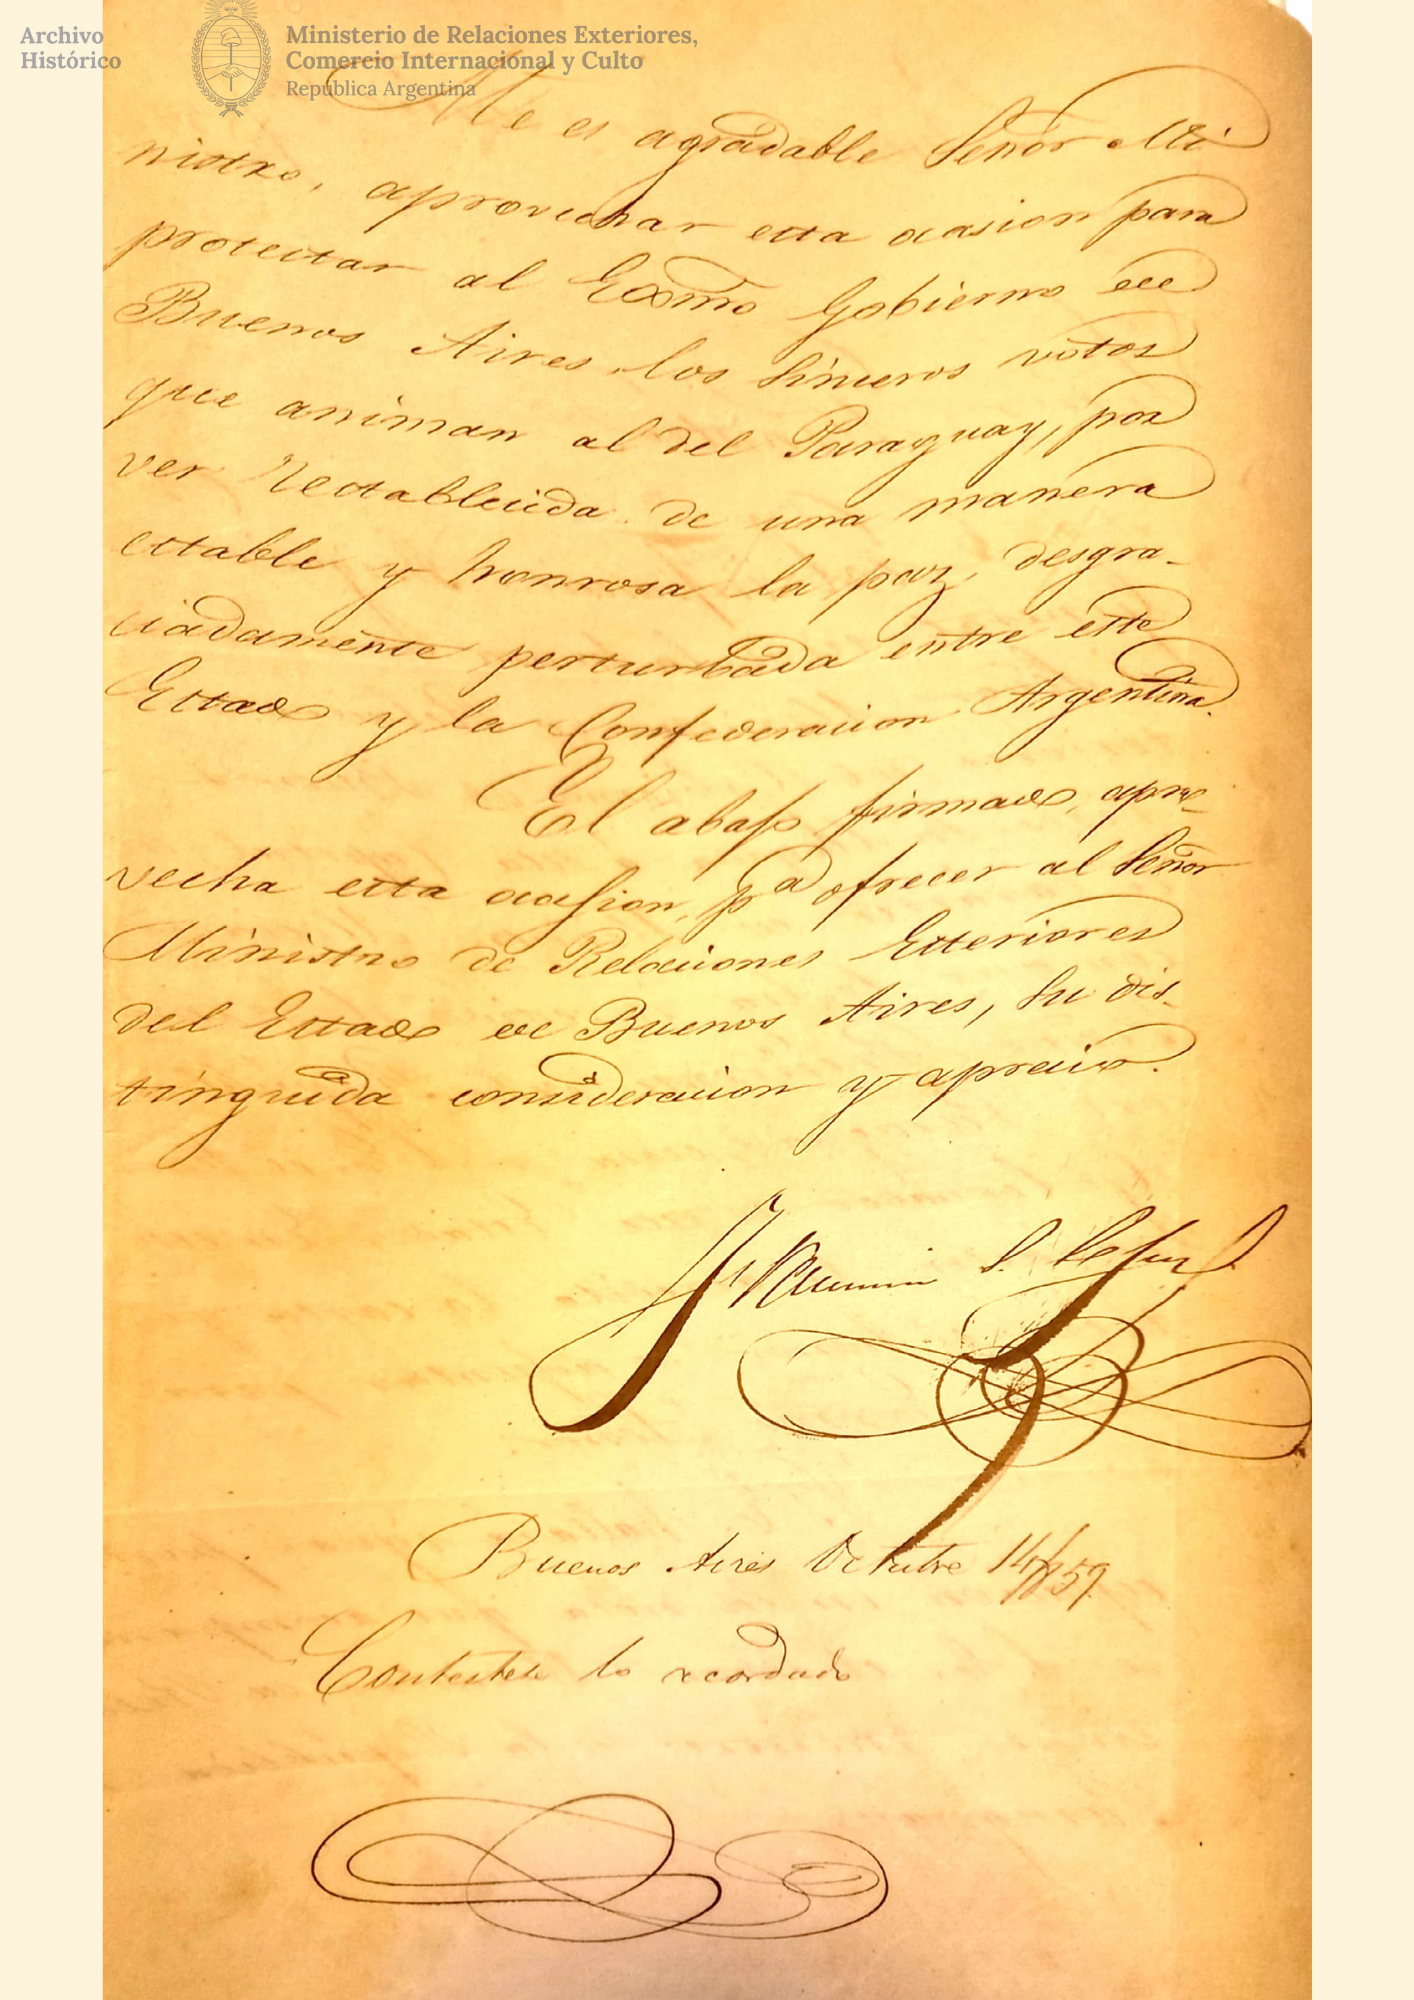 Archivo
Histórico
Ministerio de Relaciones Exteriores,
Comercio Internacional y Culto
República Argentina
Me es agradable Señor Mi
nistro, aprovechar esta ocasion para
protestar al Exmo Gobierno de
Buenos Aires los sinceros votos
que animan al del Paraguay, por
ver restablecida de una manera
estable y honrosa la paz, desgra-
ciadamente perturbada entre este
Estado y la Confederacion Argentina.
El abajo firmado, apro-
vecha esta ocasion, pa ofrecer al Señor
Ministro de Relaciones Exteriores
del Estado de Buenos Aires, su dis-
tinguida consideracion y aprecio.
S. Lopez
Buenos Aires Octubre 14/859.
Contestese lo acordado